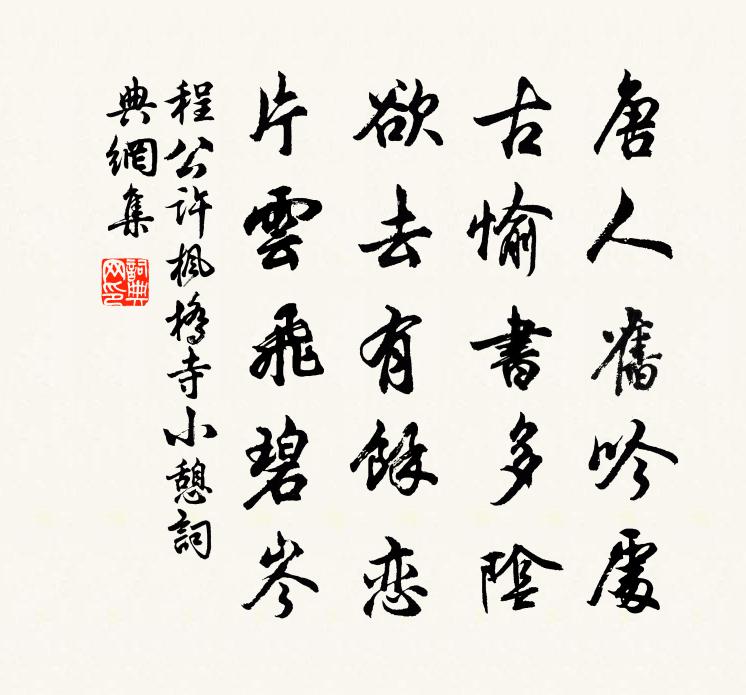 唐人舊吟處
古愉書多陰
欲去有餘恋
片雲飛碧岑
程公許楓橋寺小憩詞
典網集
詞典
网印